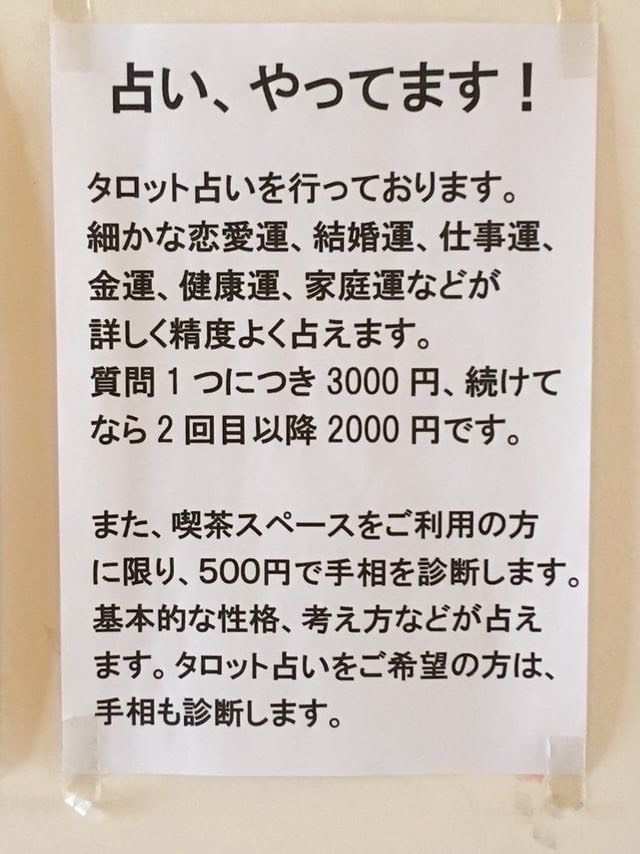 占い、やってます！
タロット占いを行っております。
細かな恋愛運、結婚運、仕事運、
金運、健康運、家庭運などが
詳しく精度よく占えます。
質問１つにつき 3000 円、続けて
なら２回目以降 2000 円です。
また、喫茶スペースをご利用の方
に限り、500円で手相を診断します。
基本的な性格、考え方などが占え
ます。タロット占いをご希望の方は、
手相も診断します。